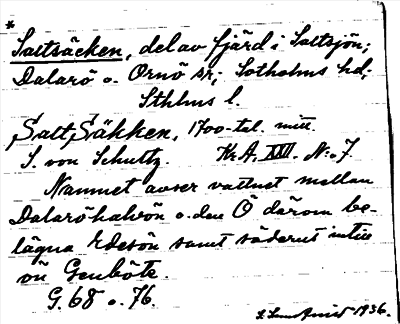 *
Saltsäcken, del av fjärd i Saltsjön;
Dalarö o. Ornö sr; Sotholms hd;
Sthlms l.
Salt Säkken, 1700-tal. mitt.
S. von Schultz. Kr.A. XXII. N:o 7.
Namnet avser vattnet mellan
Dalaröhalvön o. den Ö därom be-
lägna Edesön samt söderut intill
ön Genböte.
G. 68 o. 76.
1936.